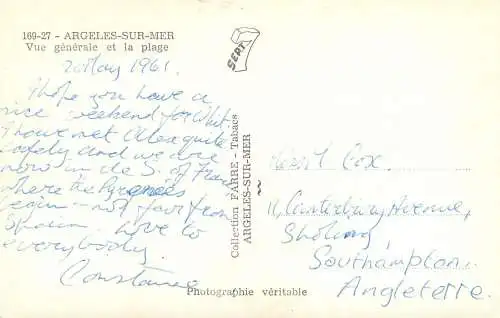 169-27 - ARGELES-SUR-MER
Vue générale et la plage
SERT
20 May 1961.
I hope you have a
nice weekend for Whit.
I have met Alex quite
safely and we are
now in the S. of France
where the Pyrenees
begin - not far from
Spain. Love to
everybody.
Constance
Collection FARRE - Tabacs
ARGELES-SUR-MER
Photographie véritable
Cox.
11, Canterbury Avenue,
Sholing
Southampton.
Angleterre.